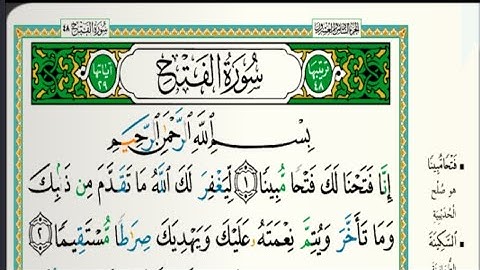 سُورَةُ الْفَتْحِ ٤٨
الجزء السادس والعشرون
آيَاتُهَا ٢٩
سُورَةُ الْفَتْحِ
تَرْتِيبُهَا ٤٨
بِسْمِ اللَّهِ الرَّحْمَٰنِ الرَّحِيمِ
إِنَّا فَتَحْنَا لَكَ فَتْحًا مُّبِينًا ١ لِّيَغْفِرَ لَكَ اللَّهُ مَا تَقَدَّمَ مِن ذَنۢبِكَ
وَمَا تَأَخَّرَ وَيُتِمَّ نِعْمَتَهُۥ عَلَيْكَ وَيَهْدِيَكَ صِرَٰطًا مُّسْتَقِيمًا ٢
■ فَتْحًا مُّبِينًا
هو صُلْح
الحُدَيْبِيَة
■ السَّكِينَةَ